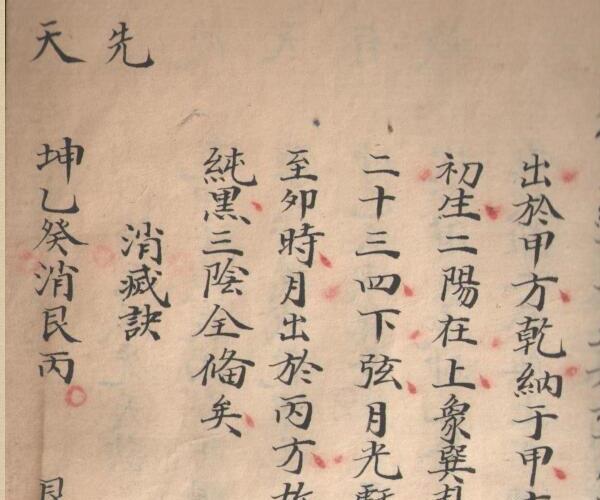 出於甲方乾納于甲
初生二陽在上象巽
二十三四下弦月光
至夘時月出於丙方
純黒三陰全偹矣
先天
消滅訣
坤乙癸消艮丙